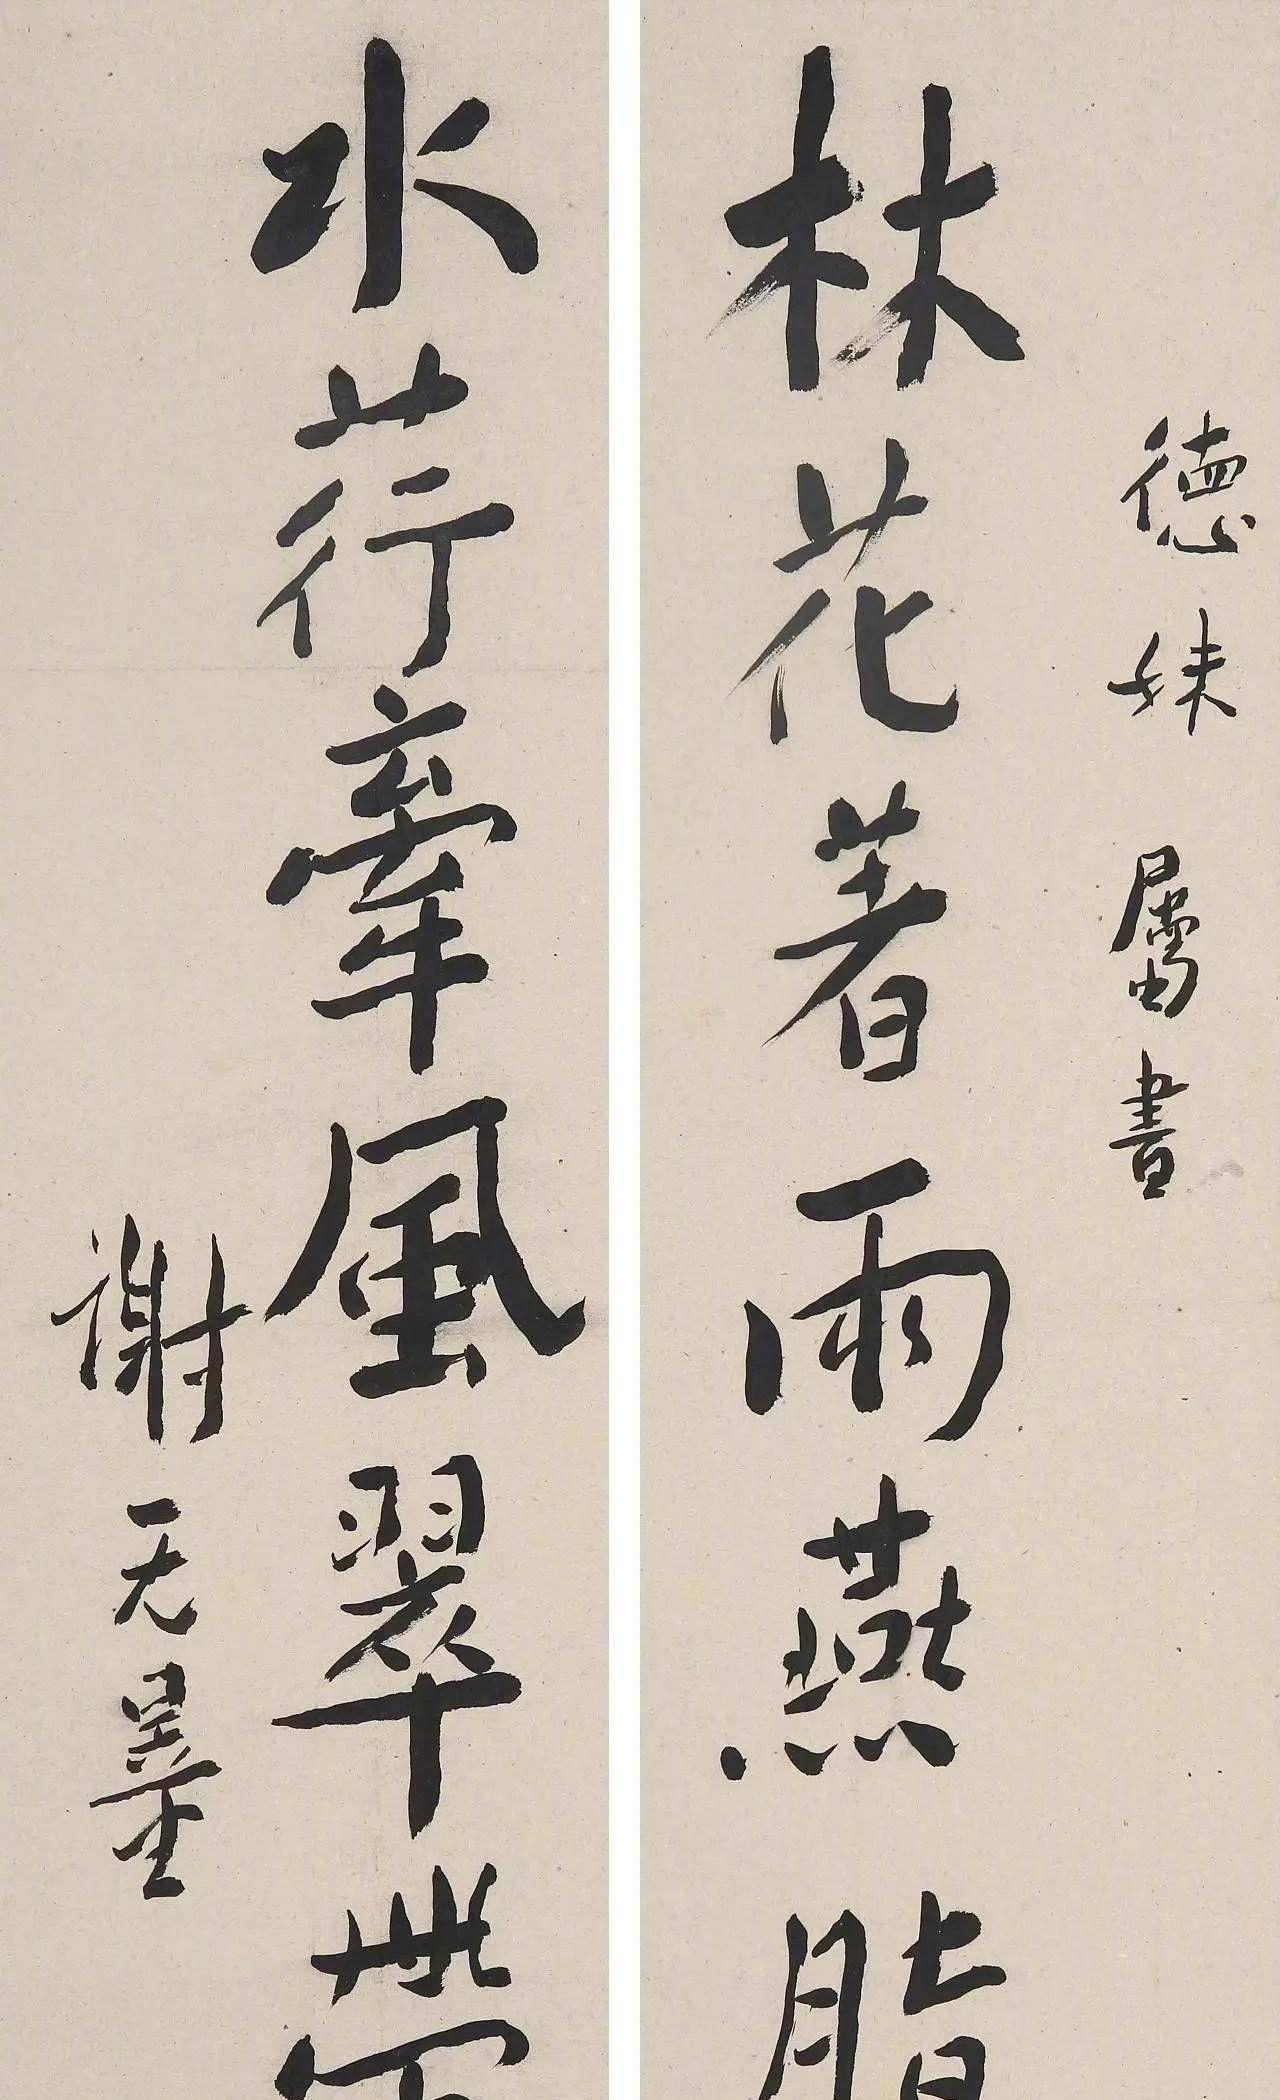 德妹 屬書
林花著雨燕脂
水荇牽風翠帶
謝无量